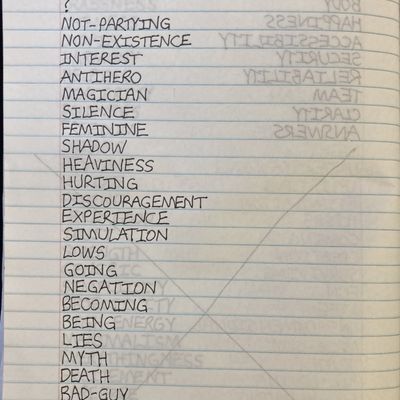 ?
BODY
NOT-PARTYING HAPPINESS
NON-EXISTENCE ACCESSIBILITY
INTEREST SECURITY
ANTIHERO RELIABILITY
MAGICIAN TEAM
SILENCE CLARITY
FEMININE ANSWERS
SHADOW
HEAVINESS
HURTING
DISCOURAGEMENT
EXPERIENCE
SIMULATION
LOWS
GOING
NEGATION
BECOMING
BEING ENERGY
LIES
MYTH
DEATH
BAD-GUY